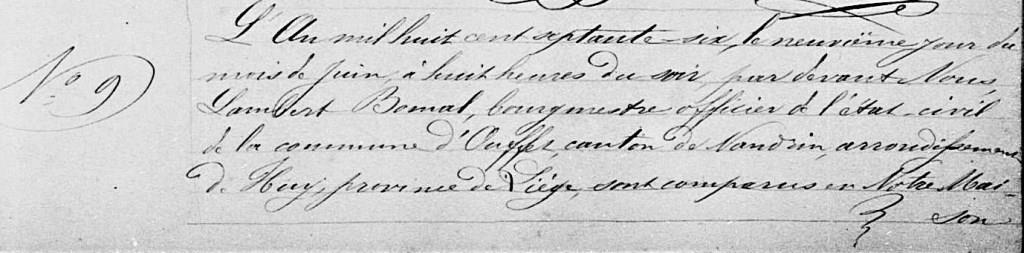 L'An mil huit cent septante-six, le neuvième jour du
N° 9
mois de juin, à huit heures du soir, par devant Nous,
Lambert Bomal, bourgmestre officier de l'état-civil
de la commune d'Ouffet, canton de Nandrin, arrondissement
de Huy, province de Liége, sont comparus en Notre Mai-
son